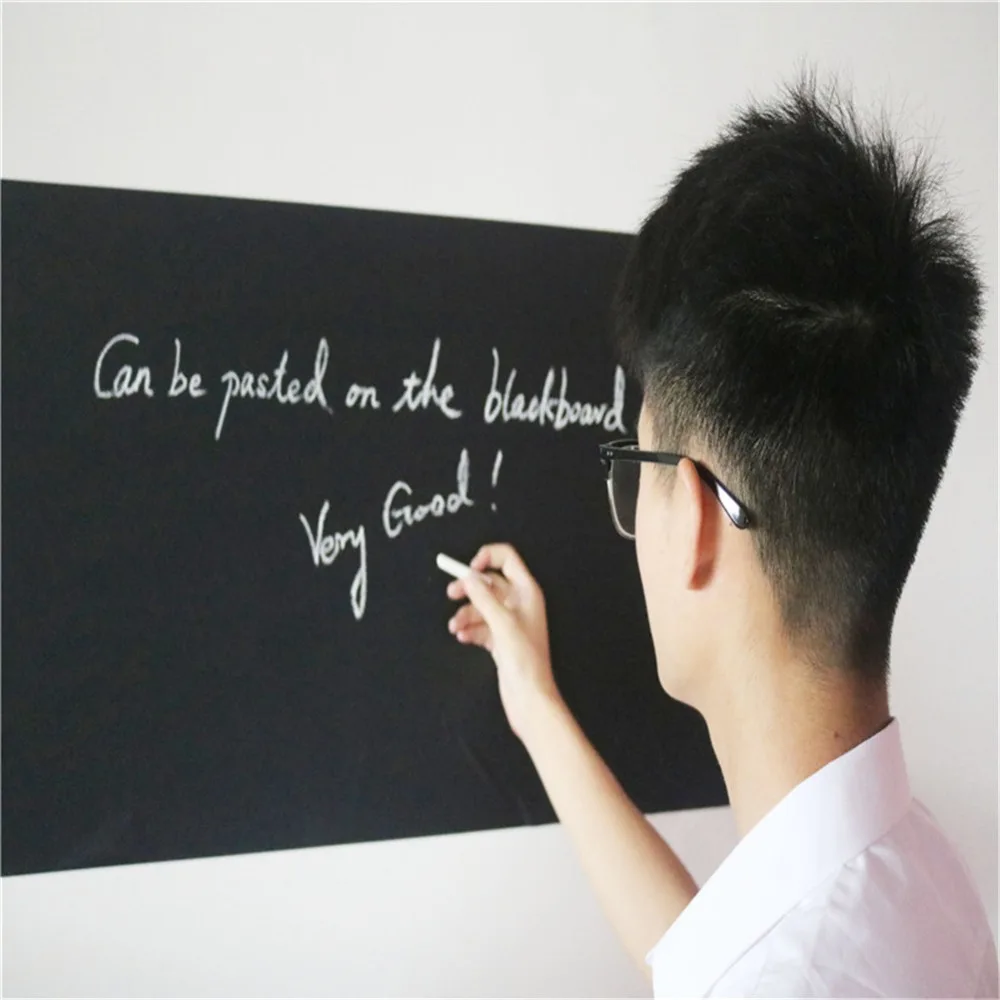 Can be pasted on the blackboard
Very Good!